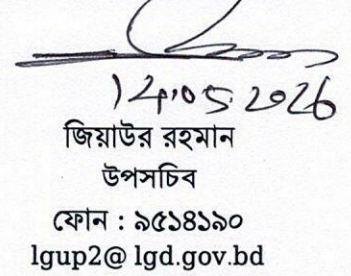 14.05.2026
জিয়াউর রহমান
উপসচিব
ফোন : ৯৫১৪১৯০
lgup2@ lgd.gov.bd